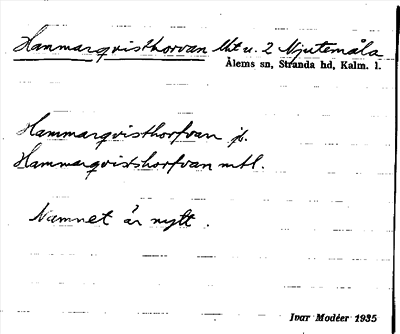 Hammarqvisthorvan lht u. 2 Njutemåla
Ålems sn, Stranda hd, Kalm. l.
Hammarqvisthorfvan jb.
Hammarqvistshorfvan mtl.
Namnet är nytt.
Ivar Modéer 1935